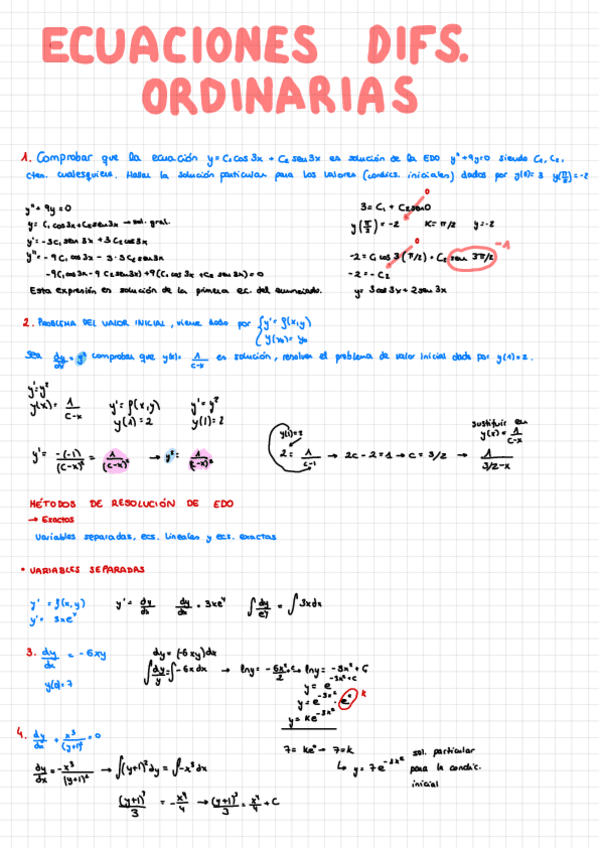 ECUACIONES DIFS.
ORDINARIAS
1. Comprobar que la ecuación y = C₁ cos 3x + C₂ sen 3x es solución de la EDO y'' + 9y = 0 siendo C₁, C₂,
ctes. cualesquiera. Hallar la solución particular para los valores (condics. iniciales) dados por y(0) = 3
y'' + 9y = 0
y = C₁ cos 3x + C₂ sen 3x → sol. gral.
y' = -3C₁ sen 3x + 3C₂ cos 3x
-9C₁ cos 3x - 9C₂ sen 3x + 9(C₁ cos 3x + C₂ sen 3x) = 0
Esta expresión es solución de la primera ec. del enunciado.
0
3 = C₁ + C₂ sen 0
x = π/2 y = -2
0
-2 = C₁ cos 3(π/2) + C₂ sen 3π/2
-1
-2 = -C₂
y = 3 cos 3x + 2 sen 3x
2. PROBLEMA DEL VALOR INICIAL, viene dado por { y' = f(x,y)
y(x₀) = y₀
Sea dy/dx = y² comprobar que y(x) = 1/(C-x) es solución, resolver el problema de valor inicial dado por y(1) = 2.
y' = y²
y(x) = 1/(C-x) y' = f(x,y) y' = y²
y(1) = 2 y(1) = 2
y' = -(-1)/(C-x)² = 1/(C-x)² → y² = 1/(C-x)²
y(1) = 2
2 = 1/(C-1) → 2C - 2 = 1 → C = 3/2 →
sustituir en
y(x) = 1/(C-x)
1/(3/2-x)
MÉTODOS DE RESOLUCIÓN DE EDO
→ Exactos
Variables separadas, ecs. lineales y ecs. exactas
• VARIABLES SEPARADAS
y' = f(x,y) y' = dy/dx dy/dx = 3xeʸ ∫dy/eʸ = ∫3xdx
y' = 3xeʸ
3. dy/dx = -6xy
y(0) = 7
dy = (-6xy)dx
∫dy/y = ∫-6xdx → lny = -6x²/2 + C → lny = -3x² + C
y = e^(-3x²+C)
y = e^(-3x²) · e^c K
y = Ke^(-3x²)
7 = Ke⁰ → 7 = K
↳ y = 7e^(-3x²)
sol. particular
para la condic.
inicial
4. dy/dx + x³/(y+1)² = 0
dy/dx = -x³/(y+1)² → ∫(y+1)²dy = ∫-x³dx
(y+1)³/3 = -x⁴/4 → (y+1)³/3 = x⁴/4 + C